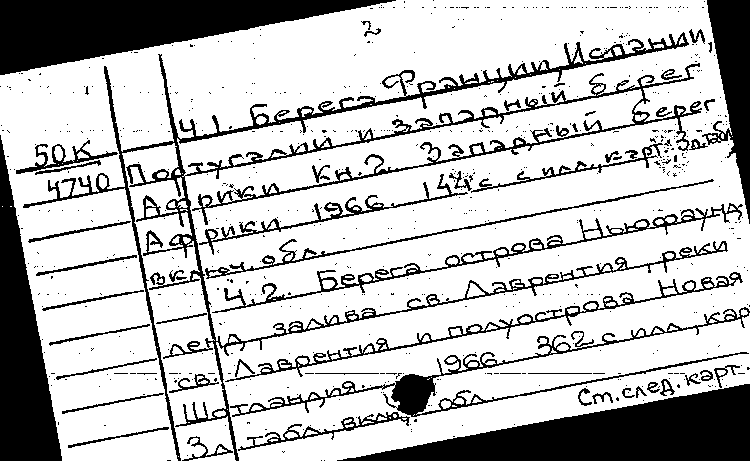 2
Ч.1. Берега Франции, Испании,
50К
4740
Португалии и западный берег
Африки Кн.2. Западный берег
Африки 1966. 144 с. с илл., карт. 3л. табл.
включ. обл.
Ч.2. Берега острова Ньюфаунд-
ленд, залива св. Лаврентия, реки
св. Лаврентия и полуострова Новая
Шотландия. 1966. 362 с илл., кар
3л. табл., включ. обл.
Ст. след. карт.